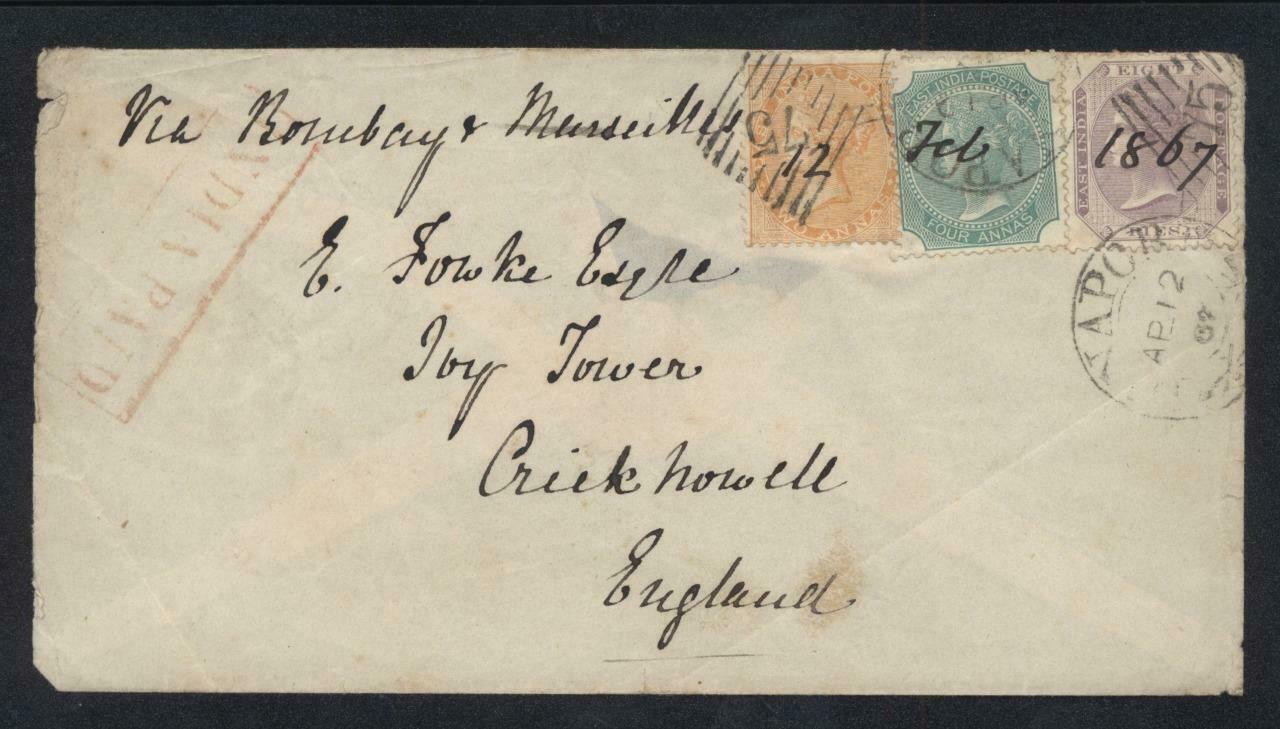 Via Bombay & Marseilles
12 Feb 1867
E. Fowke Esqre
Ivy Tower
Crickhowell
England
INDIA PAID
TWO ANNAS
EAST INDIA POSTAGE
FOUR ANNAS
EAST INDIA
EIGHT
PIES
AP 12